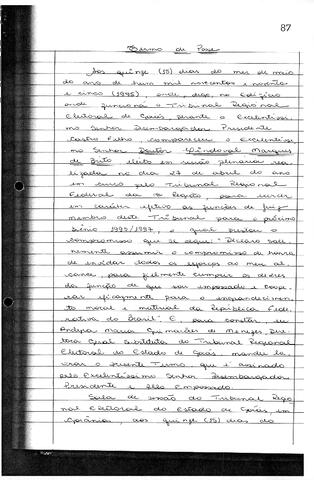 87
Termo de Posse
Aos quinze (15) dias do mes de maio
do ano de hum mil novecentos e noventa
e cinco (1995), onde digo no Edifício
onde funciona o Tribunal Regional
Eleitoral de Goiás, perante o Excelentíssi
mo Senhor Desembargador Presidente
Castro Filho, compareceu o excelentíssi
mo Senhor Doutor Lindoval Marques
de Brito eleito em sessão plenária rea
lizada no dia 27 de abril do ano
em curso pelo Tribunal Regional
Federal da 1ª Região, para servir
em caráter efetivo as funções de juiz
membro deste Tribunal para o próximo
biênio 1995/1997, o qual prestou o
compromisso que se segue: "Declaro sole
nemente assumir o compromisso de honra
de envidar todos os esforços ao meu al
cance, para fielmente cumprir os deveres
da função de que sou empossado e coope
rar eficazmente para o engrandecimen
to moral e material da República Fede
rativa do Brasil". E para constar eu
Maria Guimarães de Menezes, Dire
tora Geral Substituta do Tribunal Regional
Eleitoral do Estado de Goiás mandei la
vrar o presente Termo que é assinado
pelo Excelentíssimo Senhor Desembargador
Presidente e pelo Empossado.
Sala de sessão do Tribunal Regio
nal Eleitoral do Estado de Goiás, em
Goiânia, aos quinze (15) dias do